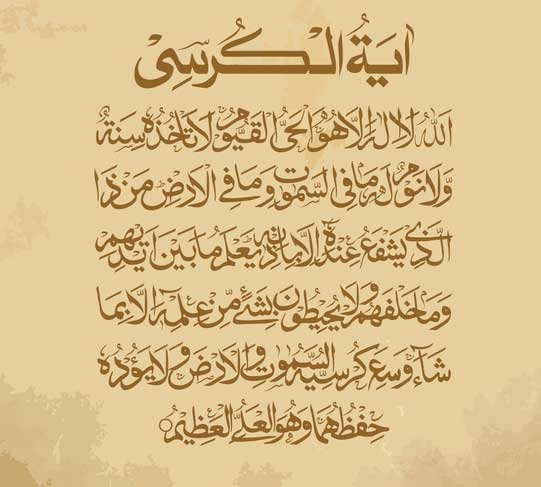 اٰيَةُ الْكُرْسِىّ
اَللّٰهُ لَا اِلٰهَ اِلَّا هُوَ الْحَىُّ الْقَيُّومُ لَا تَأْخُذُهُ سِنَةٌ
وَلَا نَوْمٌ لَهُ مَا فِى السَّمٰوَاتِ وَمَا فِى الْاَرْضِ مَنْ ذَا
الَّذِى يَشْفَعُ عِنْدَهُ اِلَّا بِاِذْنِهِ يَعْلَمُ مَا بَيْنَ اَيْدِيهِمْ
وَمَا خَلْفَهُمْ وَلَا يُحِيطُونَ بِشَىْءٍ مِنْ عِلْمِهِ اِلَّا بِمَا
شَاءَ وَسِعَ كُرْسِيُّهُ السَّمٰوَاتِ وَالْاَرْضَ وَلَا يَؤُدُهُ
حِفْظُهُمَا وَهُوَ الْعَلِىُّ الْعَظِيمُ